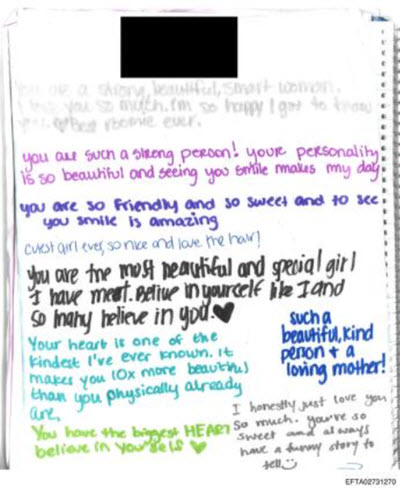 You are a strong, beautiful, smart woman.
I love you so much. I'm so happy I got to know
you. Best roomie ever.
you are such a strong person! your personality
is so beautiful and seeing you smile makes my day
you are so friendly and so sweet and to see
you smile is amazing
cutest girl ever, so nice and love the hair!
You are the most beautiful and special girl
I have meet. Belive in yourself like I and
so many believe in you. ♥
Your heart is one of the
kindest I've ever known. It
makes you 10x more beautiful
than you physically already
are.
such a
beautiful, kind
person + a
loving mother!
You have the biggest HEART
believe in yourself ♥
I honestly just love you
so much. you're so
sweet and always
have a funny story to
tell :)
EFTA02731270